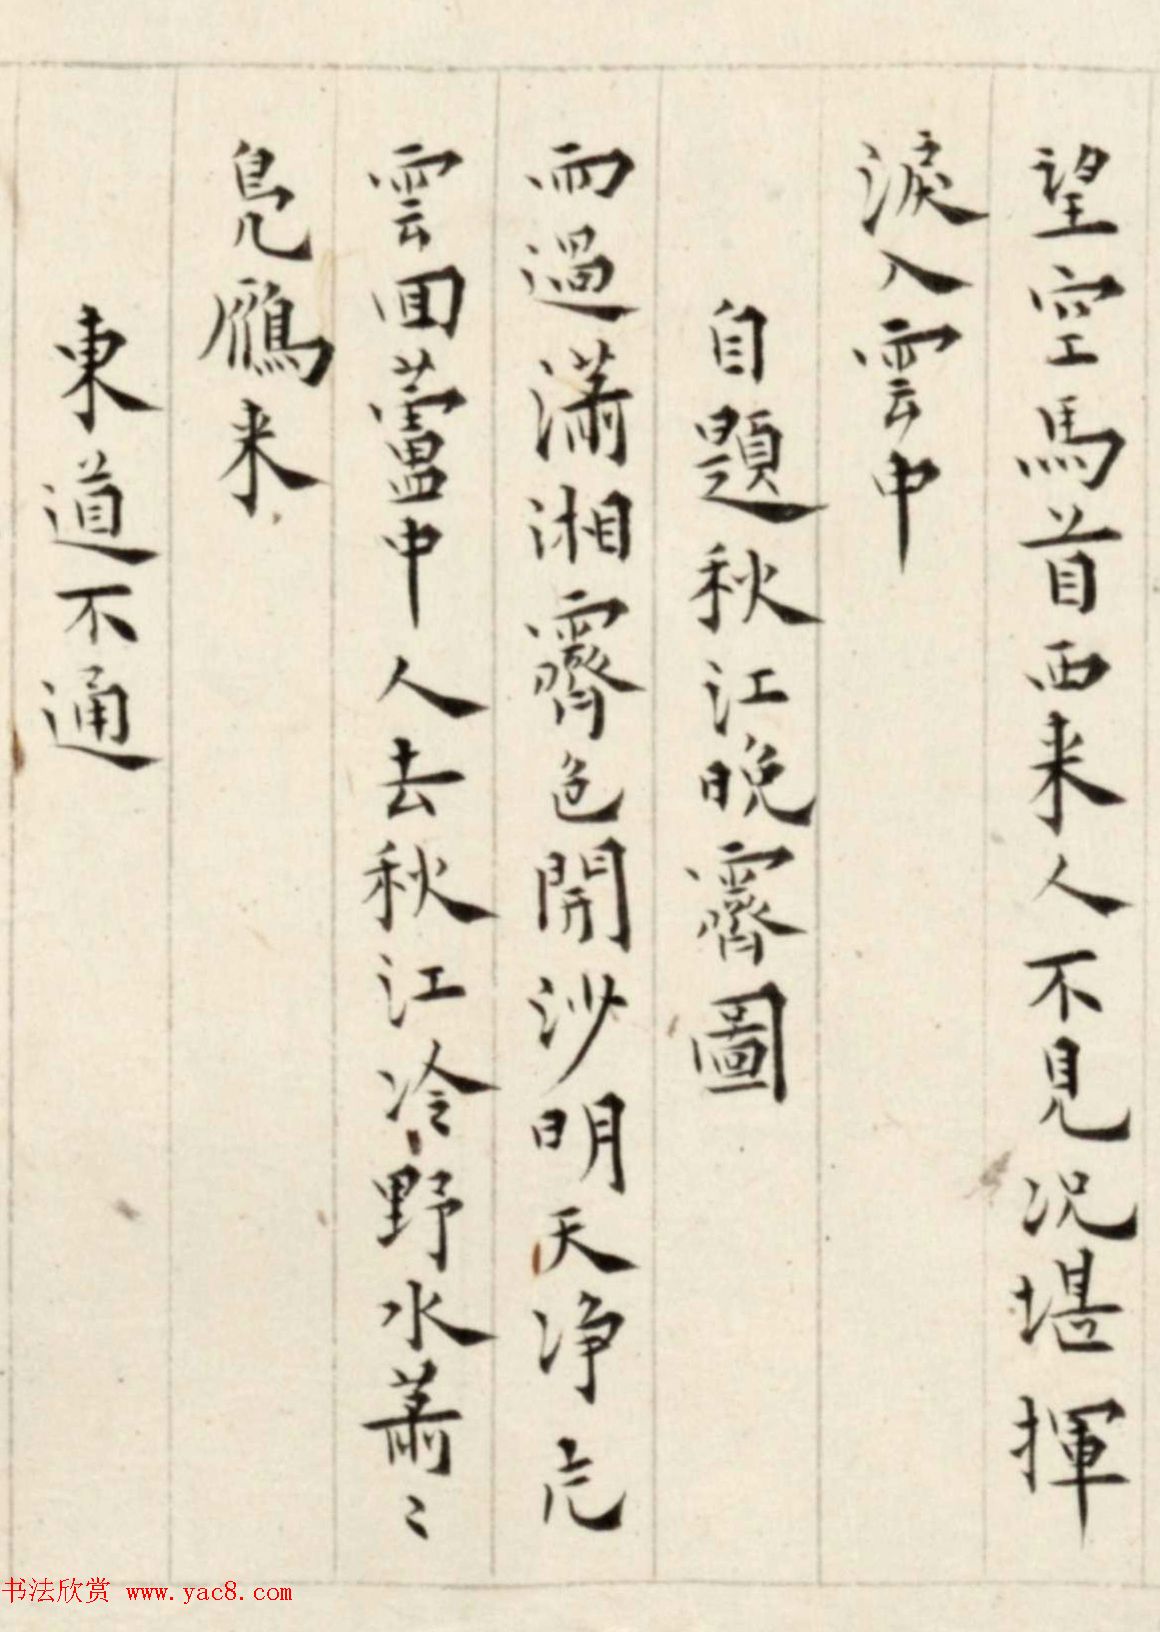 望空馬首西来人不見況堪揮
淚入雲中
自題秋江晚霽圖
雨過瀟湘霽色開沙明天淨
雲回蘆中人去秋江冷野水蕭〻
鳧鴈来
東道不通
书法欣赏 www.yac8.com